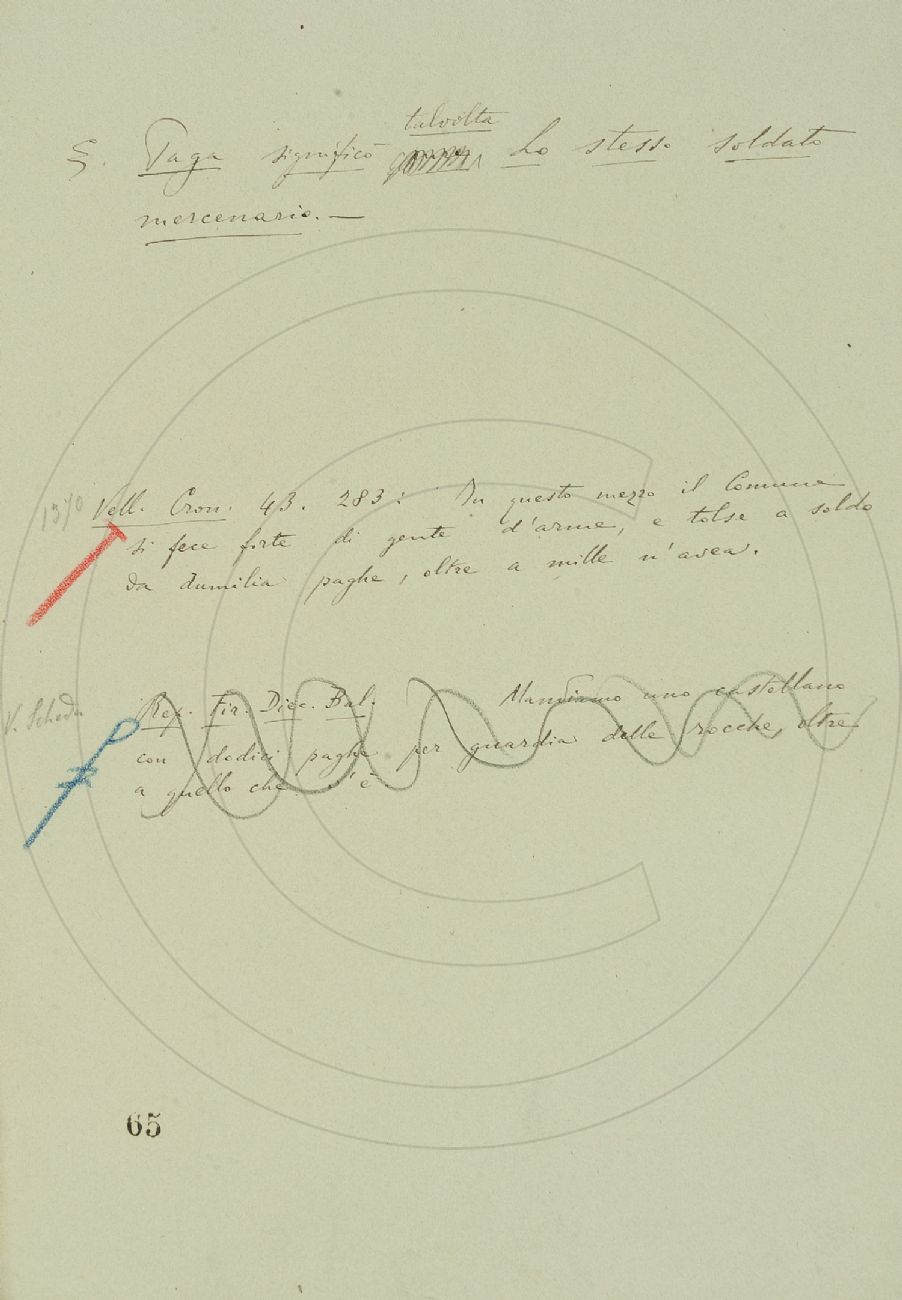 talvolta
§. Paga significò lo stesso soldato
mercenario. —
1370 Vell. Cron. 43. 283: In questo mezzo il Comune
si fece forte di gente d'arme, e tolse a soldo
da dumilia paghe, oltre a mille n'avea.
V. Scheda Rep. Fir. Diec. Bal. Mandiamo uno castellano
con dodici paghe per guardia delle rocche, oltre
a quello che v'è
65